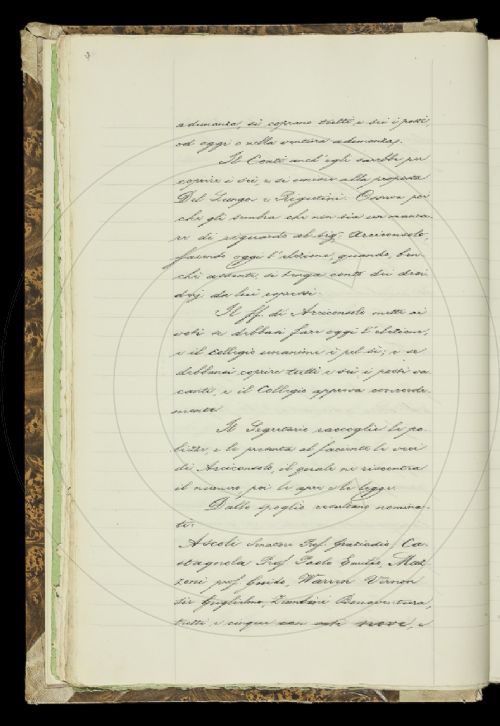 adunanza, si coprano tutti e sei i posti,
od oggi o nella ventura adunanza.
Il Conti anch'egli sarebbe per
coprire i sei, e si unisce alla proposta
Del Lungo e Rigutini. Osserva poi
che gli sembra che non sia un manca-
re di riguardo al Sig. Arciconsolo,
facendo oggi l'elezione, quando, ben-
chè assente, si tenga conto dei desi-
derj da lui espressi.
Il ff. di Arciconsolo mette ai
voti se debbasi fare oggi l'elezione,
e il Collegio unanime è pel sì; e se
debbansi coprire tutti e sei i posti va-
canti, e il Collegio approva concorde-
mente.
Il Segretario raccoglie le po-
lizze, e le presenta al facente le veci
di Arciconsolo, il quale ne riscontra
il numero, poi le apre e le legge.
Dallo spoglio resultano nomina-
ti:
Ascoli Senatore Prof. Graziadio, Ca-
stagnola Prof. Paolo Emilio, Maz-
zoni prof. Guido, Warren Vernon
Sir Guglielmo, Zumbini Bonaventura,
tutti e cinque con voti nove, e